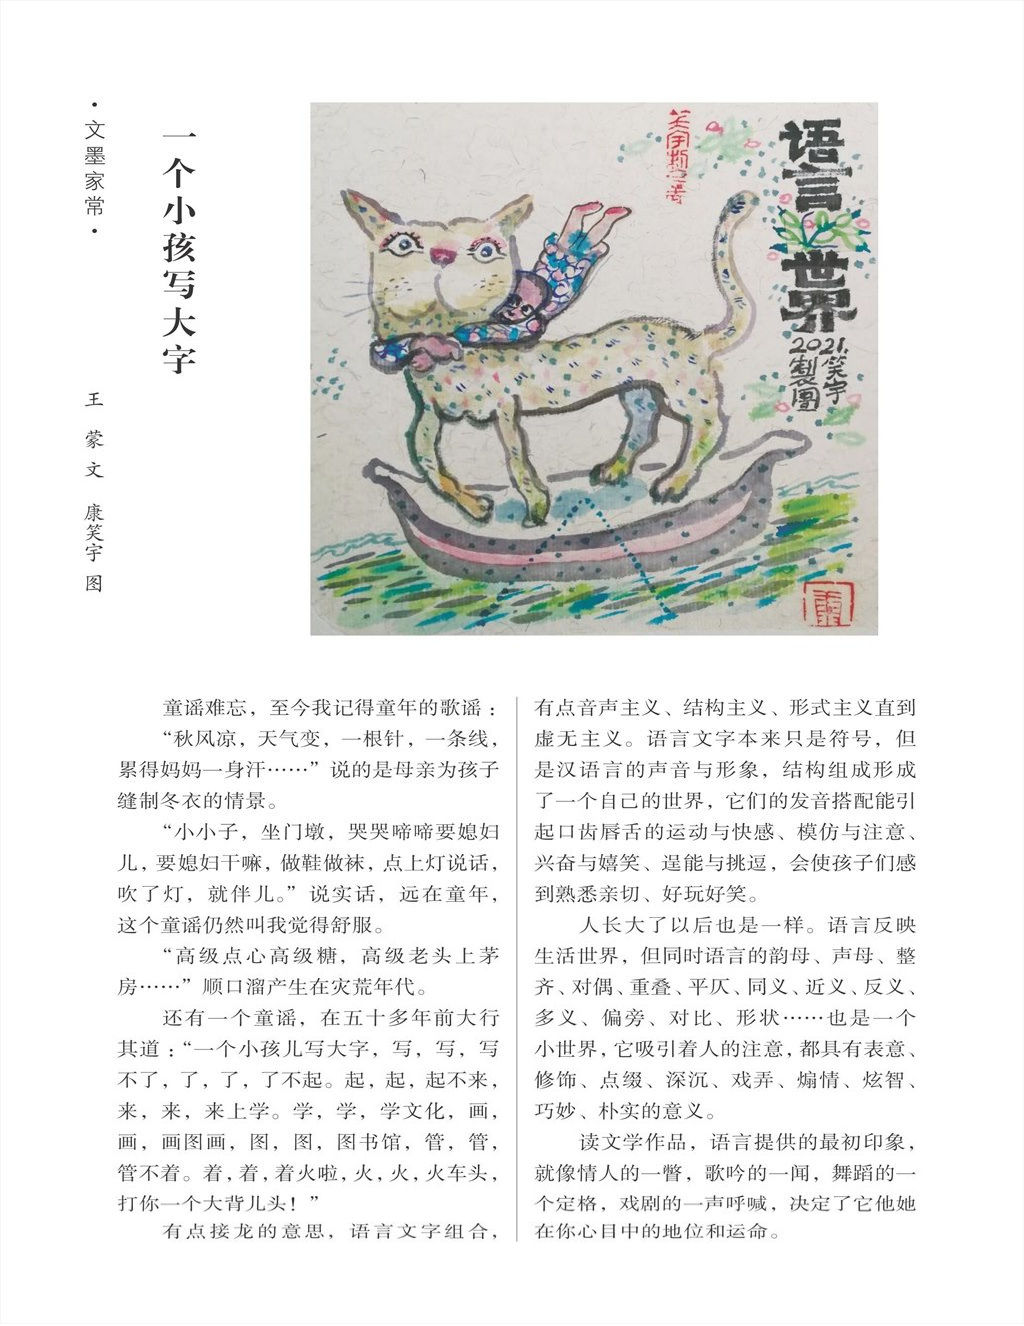 ·文墨家常·
一个小孩写大字
王 蒙 文 康笑宇 图
语言
世界
2021.笑宇
製圖
童谣难忘，至今我记得童年的歌谣：
“秋风凉，天气变，一根针，一条线，
累得妈妈一身汗……”说的是母亲为孩子
缝制冬衣的情景。
“小小子，坐门墩，哭哭啼啼要媳妇
儿，要媳妇干嘛，做鞋做袜，点上灯说话，
吹了灯，就伴儿。”说实话，远在童年，
这个童谣仍然叫我觉得舒服。
“高级点心高级糖，高级老头上茅
房……”顺口溜产生在灾荒年代。
还有一个童谣，在五十多年前大行
其道：“一个小孩儿写大字，写，写，写
不了，了，了，了不起。起，起，起不来，
来，来，来上学。学，学，学文化，画，
画，画图画，图，图，图书馆，管，管，
管不着。着，着，着火啦，火，火，火车头，
打你一个大背儿头！”
有点接龙的意思，语言文字组合，
有点音声主义、结构主义、形式主义直到
虚无主义。语言文字本来只是符号，但
是汉语言的声音与形象，结构组成形成
了一个自己的世界，它们的发音搭配能引
起口齿唇舌的运动与快感、模仿与注意、
兴奋与嬉笑、逞能与挑逗，会使孩子们感
到熟悉亲切、好玩好笑。
人长大了以后也是一样。语言反映
生活世界，但同时语言的韵母、声母、整
齐、对偶、重叠、平仄、同义、近义、反义、
多义、偏旁、对比、形状……也是一个
小世界，它吸引着人的注意，都具有表意、
修饰、点缀、深沉、戏弄、煽情、炫智、
巧妙、朴实的意义。
读文学作品，语言提供的最初印象，
就像情人的一瞥，歌吟的一闻，舞蹈的一
个定格，戏剧的一声呼喊，决定了它他她
在你心目中的地位和运命。